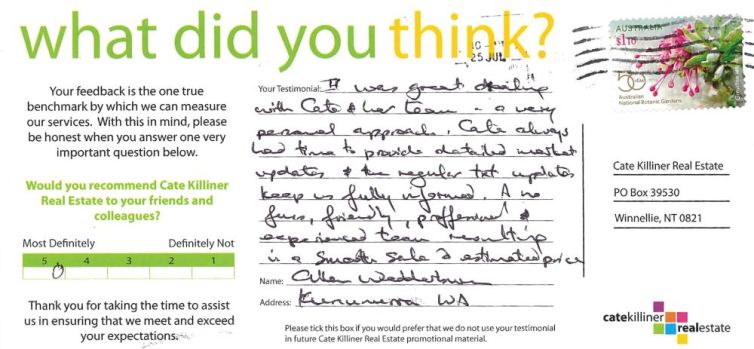 what did you think?
Your feedback is the one true
benchmark by which we can measure
our services. With this in mind, please
be honest when you answer one very
important question below.
Would you recommend Cate Killiner
Real Estate to your friends and
colleagues?
Most Definitely Definitely Not
5 4 3 2 1
Thank you for taking the time to assist
us in ensuring that we meet and exceed
your expectations.
Your Testimonial: It was great dealing
with Cate & her team - a very
personal approach. Cate always
had time to provide detailed market
updates & the regular txt updates
keep us fully informed. A no
fuss, friendly, proffesional &
experienced team resulting
in a smooth sale & estimated price
Name: Allan
Address: Kununurra WA
Please tick this box if you would prefer that we do not use your testimonial
in future Cate Killiner Real Estate promotional material.
25 JUL
AUSTRALIA
$1.10
50
Australian
National Botanic Gardens
Cate Killiner Real Estate
PO Box 39530
Winnellie, NT 0821
catekilliner
realestate